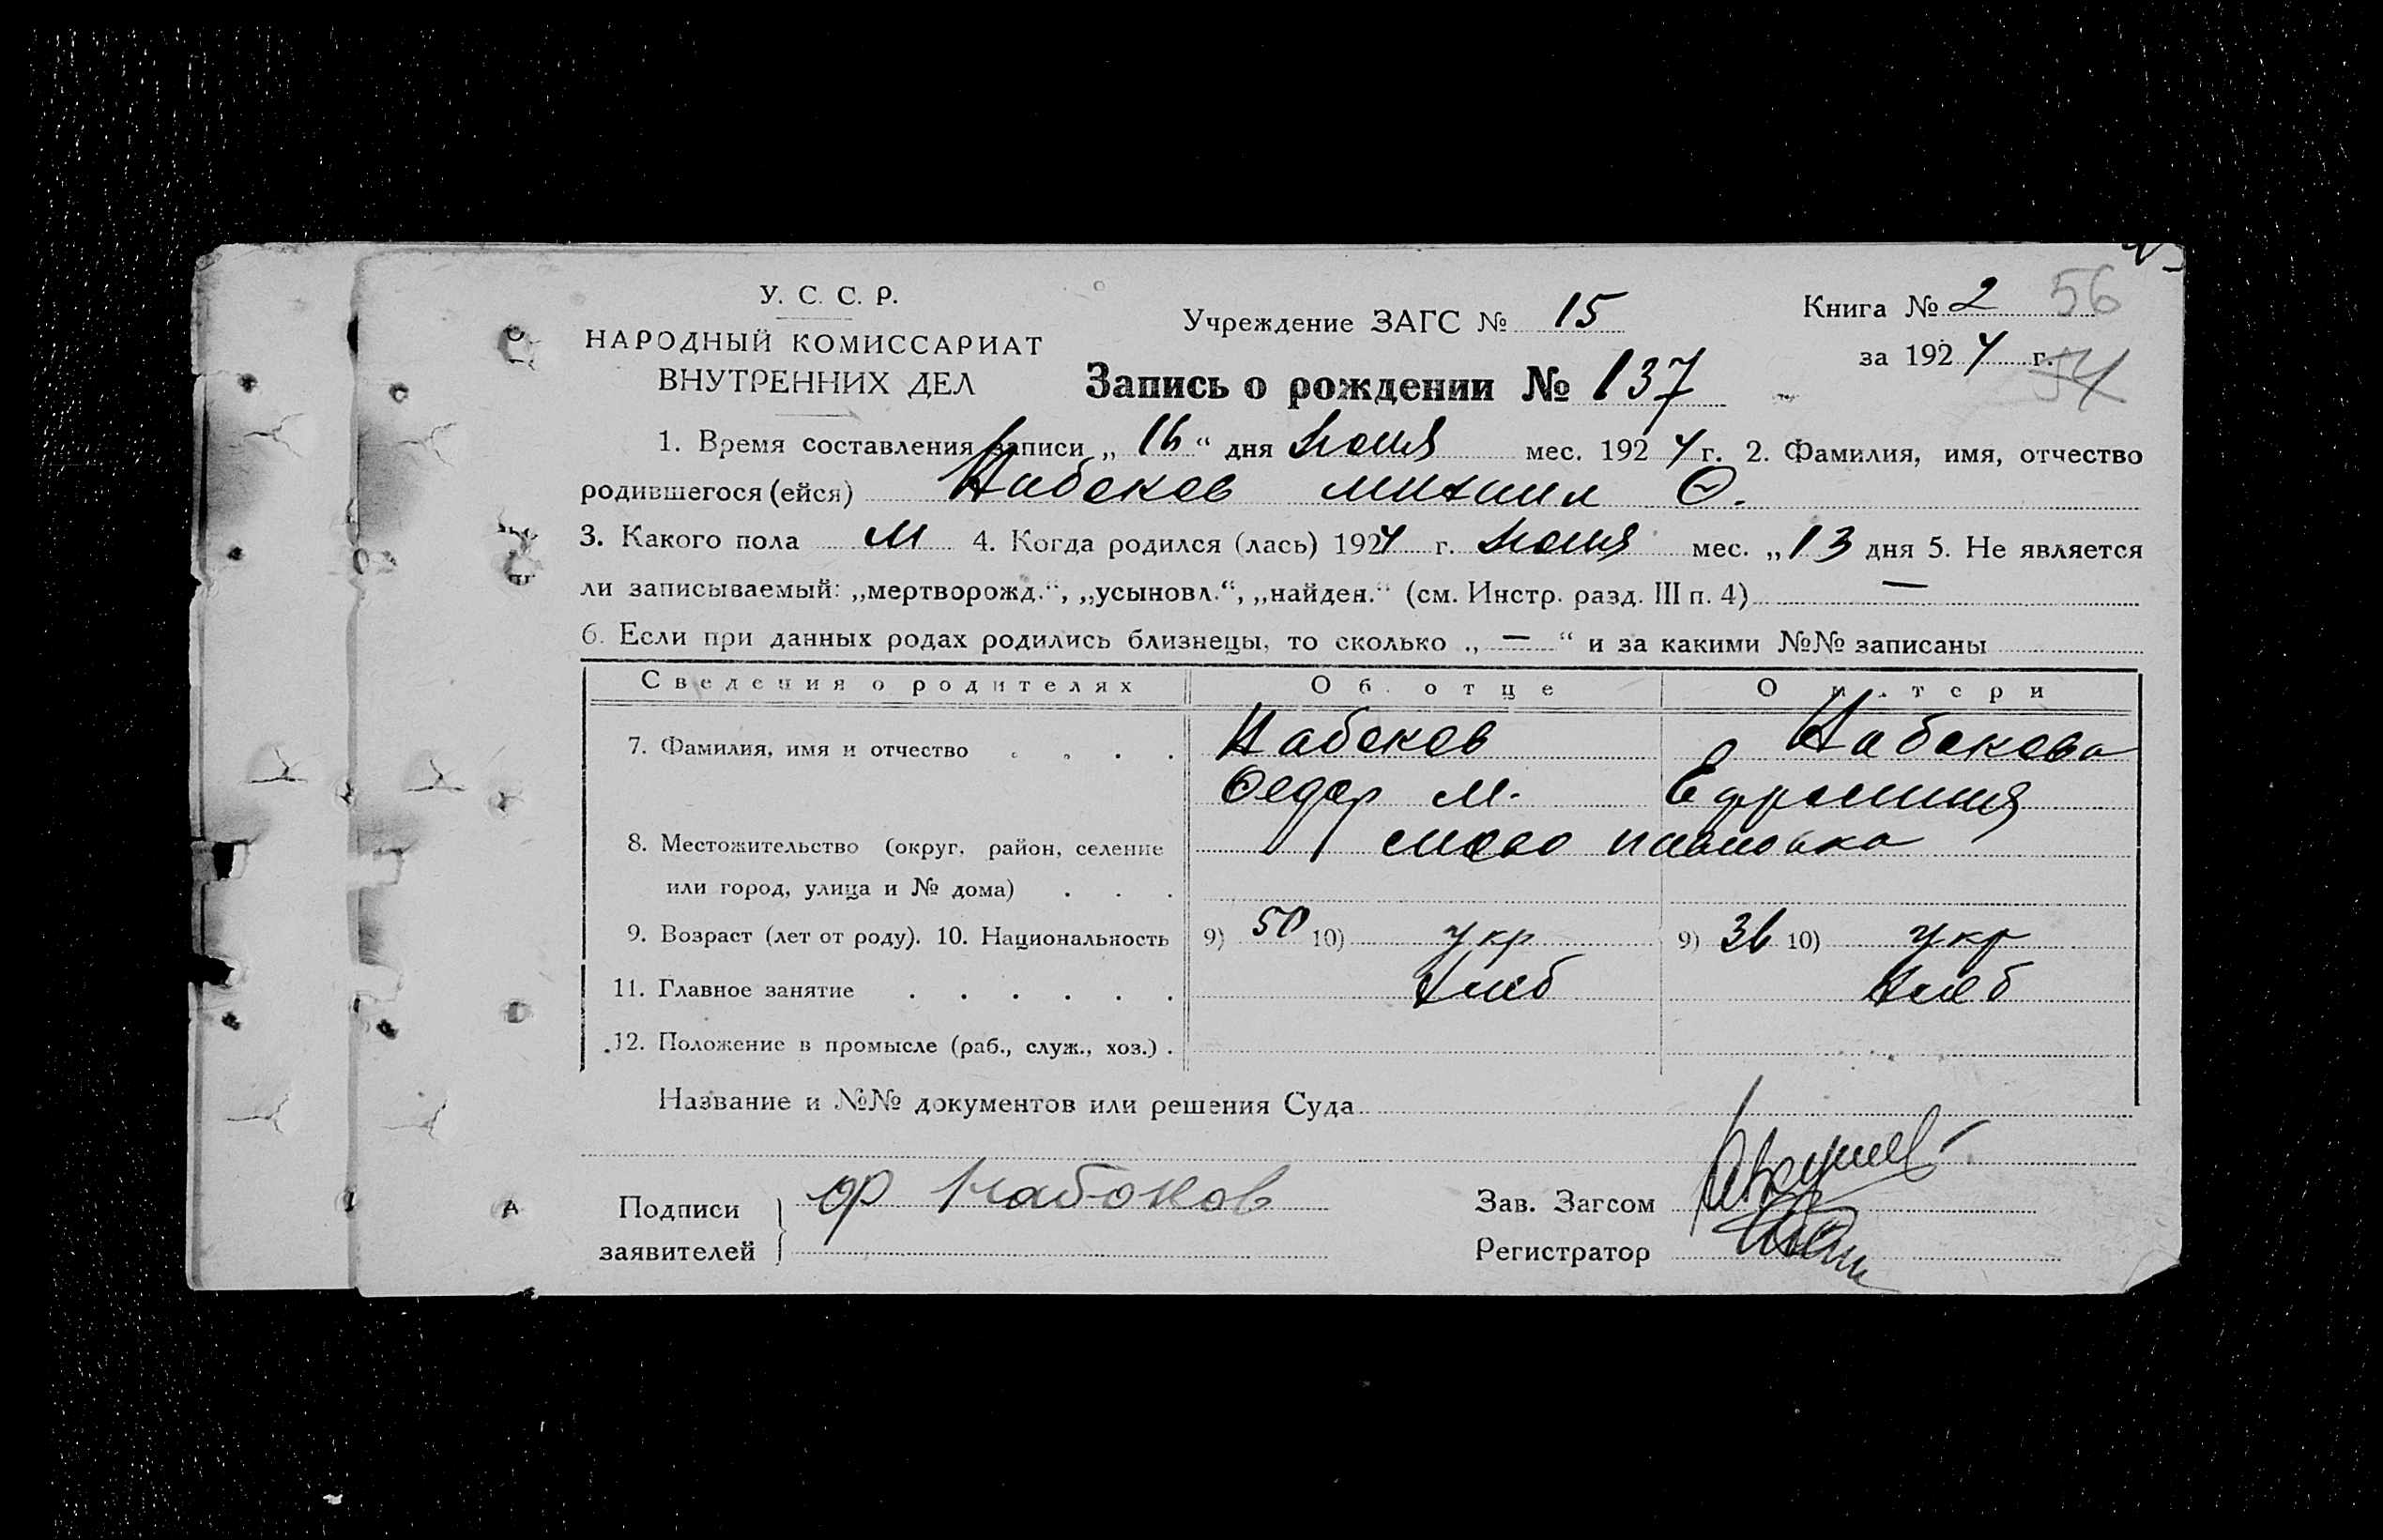 У. С. С. Р.
НАРОДНЫЙ КОМИССАРИАТ
ВНУТРЕННИХ ДЕЛ
Учреждение ЗАГС № 15
Книга № 2 56
за 1924 г. 54
Запись о рождении № 137
1. Время составления записи „ 16 “ дня июня мес. 1924 г. 2. Фамилия, имя, отчество
родившегося (ейся) Набоков михаил Ѳ.
3. Какого пола м 4. Когда родился (лась) 1924 г. июня мес. „ 13 дня 5. Не является
ли записываемый: „мертворожд.“, „усыновл.“, „найден.“ (см. Инстр. разд. III п. 4) —
6. Если при данных родах родились близнецы, то сколько „ — “ и за какими №№ записаны
Сведения о родителях Об отце О матери
7. Фамилия, имя и отчество . . . . Набоков Набокова
Ѳедор М. Ефросиния
8. Местожительство (округ, район, селение
или город, улица и № дома) . . .
9. Возраст (лет от роду). 10. Национальность 9) 50 10) укр 9) 36 10) укр
11. Главное занятие . . . . . . Хлеб Хлеб
12. Положение в промысле (раб., служ., хоз.) .
Название и №№ документов или решения Суда
Подписи заявителей } Ф Набоков
Зав. Загсом
Регистратор